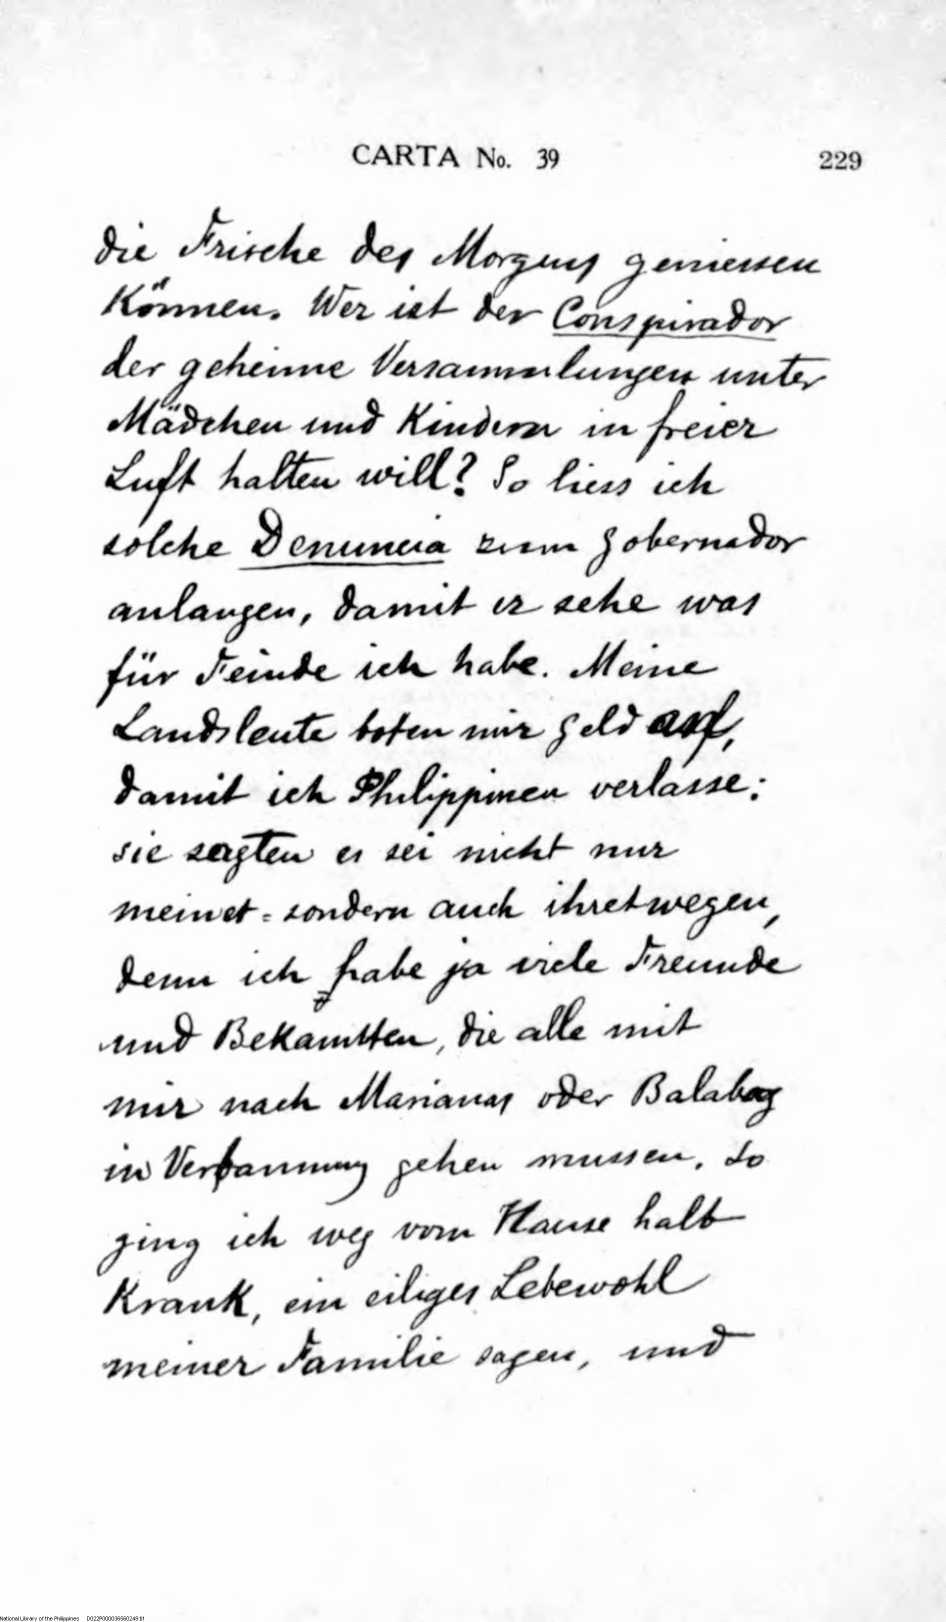 CARTA No. 39 229
die Frische des Morgens geniessen
Können. Wer ist der Conspirador
der geheime Versammlungen unter
Mädchen und Kindern in freier
Luft halten will? So liess ich
solche Denuncia zum Gobernador
anlangen, damit er sehe was
für Feinde ich habe. Meine
Landsleute boten mir Geld auf,
damit ich Philippinen verlasse:
sie sagten es sei nicht nur
meinet = sondern auch ihretwegen,
denn ich habe ja viele Freunde
und Bekannten, die alle mit
mir nach Marianas oder Balabag
in Verbannung gehen mussen. So
ging ich weg vom Hause halb
Krank, ein eiliges Lebewohl
meiner Familie sagen, und
National Library of the Philippines